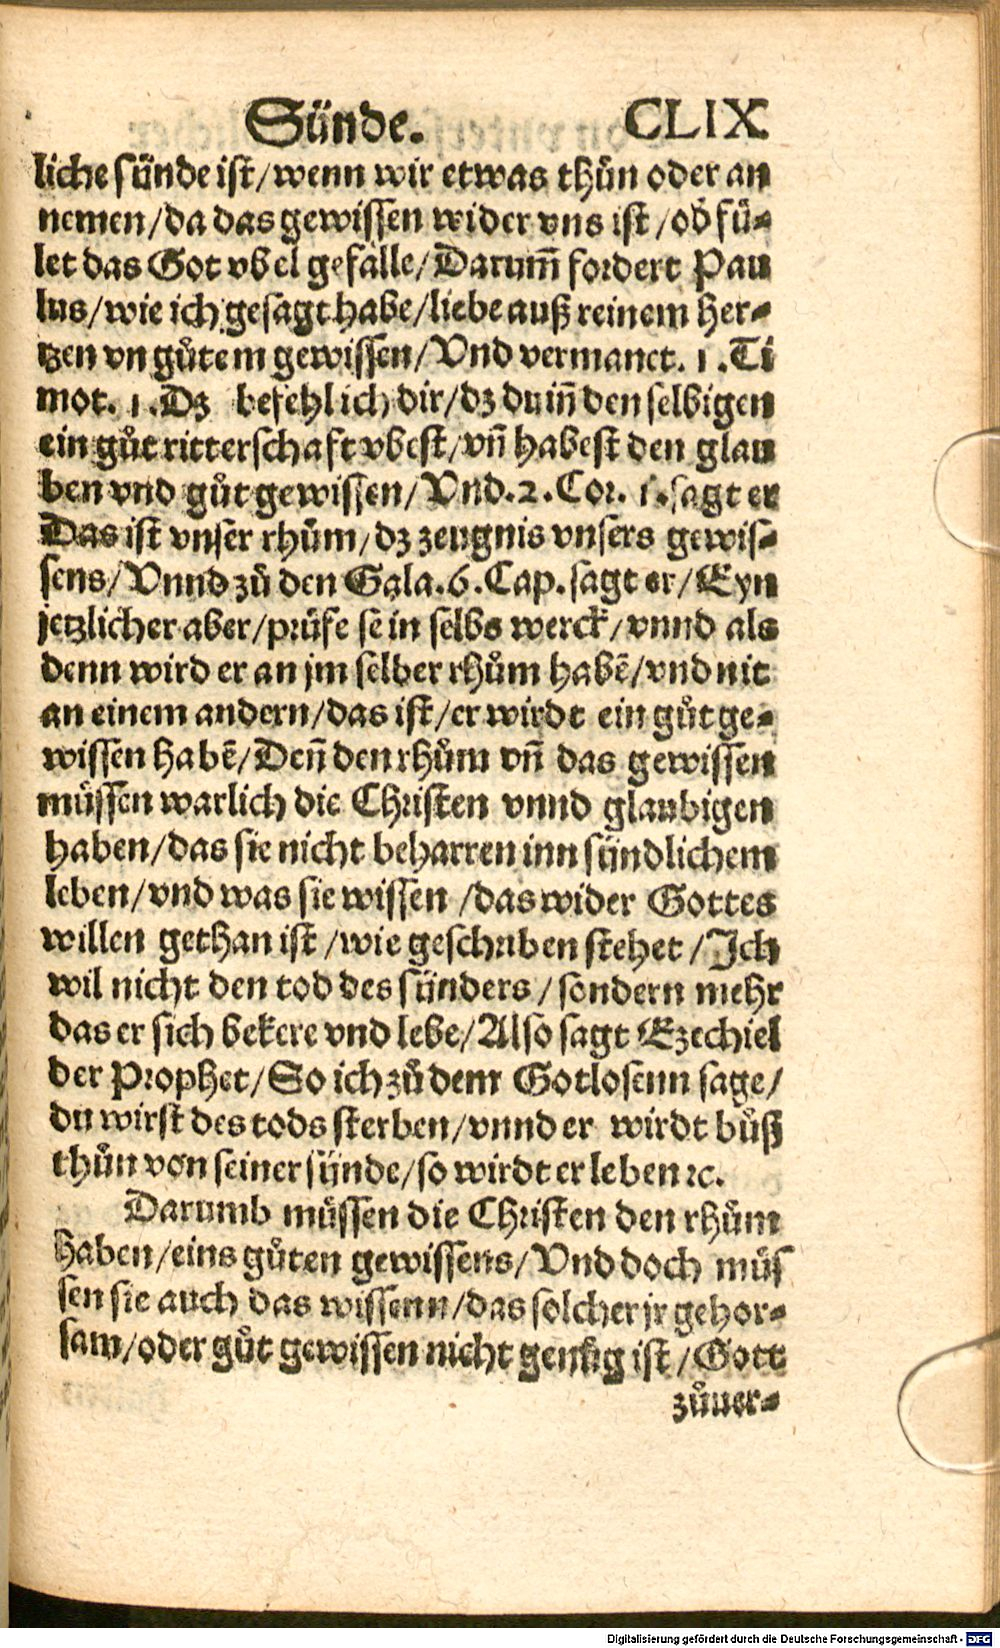 Sünde. CLIX
liche sünde ist/wenn wir etwas thůn oder an
nemen/da das gewissen wider vns ist/ob fü-
let das Got vbel gefalle/Darum̄ fordert Pau
lus/wie ich gesagt habe/liebe auß reinem her-
tzen vn gůtem gewissen/Vnd vermanet. 1. Ti
mot. 1. Dz befehl ich dir/dz du in̄ den selbigen
ein gůt ritterschaft vbest/vn̄ habest den glau
ben vnd gůt gewissen/Vnd. 2. Cor. 1. sagt er
Das ist vnser rhům/dz zeugnis vnsers gewis-
sens/Vnnd zů den Gala. 6. Cap. sagt er/Eyn
jetzlicher aber/prüfe sein selbs werck/vnnd als
denn wird er an jm selber rhům habē/vnd nit
an einem andern/das ist/er wirdt ein gůt ge-
wissen habē/Den̄ den rhům vn̄ das gewissen
müssen warlich die Christen vnnd glaubigen
haben/das sie nicht beharren inn sündlichem
leben/vnd was sie wissen/das wider Gottes
willen gethan ist/wie geschriben stehet/Ich
wil nicht den tod des sünders/sondern mehr
das er sich bekere vnd lebe/Also sagt Ezechiel
der Prophet/So ich zů dem Gotlosenn sage/
du wirst des tods sterben/vnnd er wirdt bůß
thůn von seiner sünde/so wirdt er leben ꝛc.
Darumb müssen die Christen den rhům
haben/eins gůten gewissens/Vnd doch müs
sen sie auch das wissenn/das solcher jr gehor-
sam/oder gůt gewissen nicht genůg ist/Gott
zůuer-
Digitalisierung gefördert durch die Deutsche Forschungsgemeinschaft - DFG